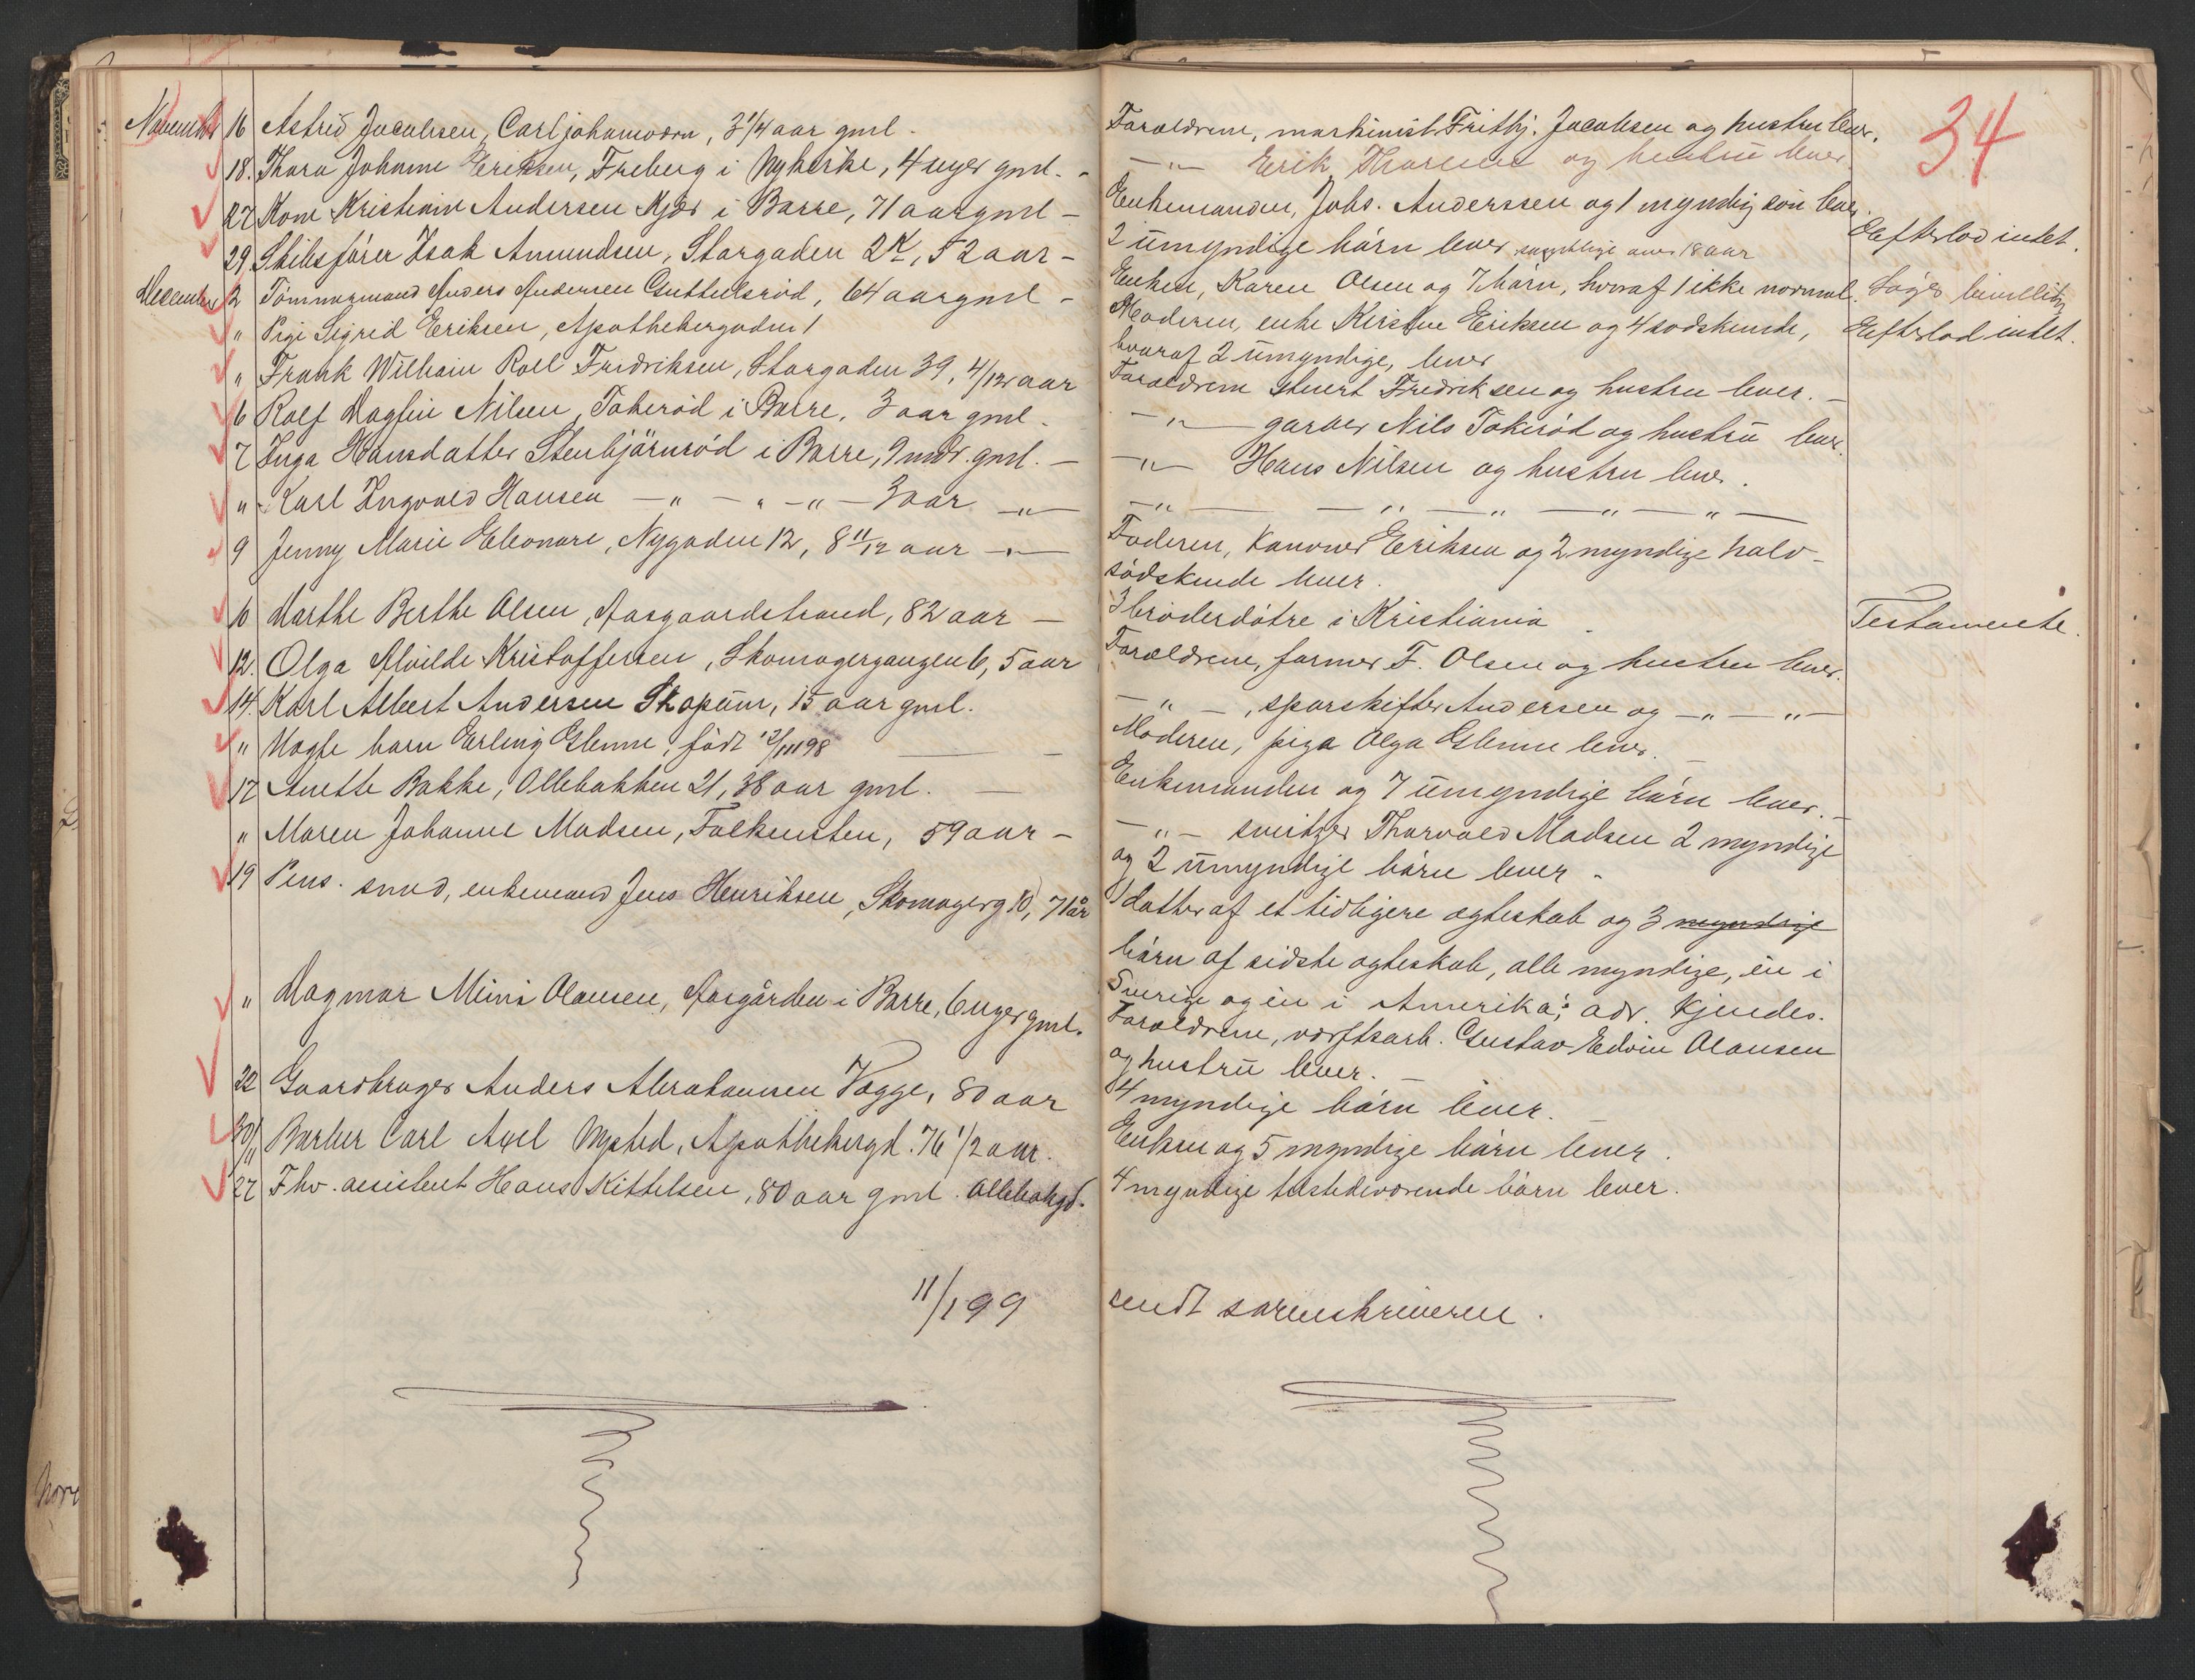 34
November 16 Astrid Jacobsen, Carljohansværn, 3 1/4 aar gml.
18. Thora Johanne Eriksen, Freberg i Nykirke, 4 uger gml. -
27 Kone Kristiane Andersen Kjær i Borre, 71 aar gml -
29. Skibsfører Isak Amundsen, Storgaden 2 K, 52 aar -
December 2 Tömmermand Anders Andersen Guttulsröd, 64 aar gml -
" Pige Sigrid Eriksen, Apothekergaden 1
" Frank William Roll Fredriksen, Storgaden 39, 4/12 aar
6 Rolf Dagfin Nilsen, Tokeröd i Borre, 3 aar gml.
7 Inga Hansdatter Stenbjörnröd i Borre, 9 mdr. gml. -
" Karl Ingvald Hansen - " - " - " - 3 aar - " -
9 Jenny Marie Eleonore, Nygaden 12, 8 11/12 aar - " -
10 Marthe Berthe Olsen, Aasgaardstrand, 82 aar -
12. Olga Alvilde Kristoffersen, Skomagergangen 6, 5 aar
14. Karl Albert Andersen Skopum, 15 aar gml.
" Uægte barn Erling Glenne, födt 12/11 98
17 Anette Bakke, Ollebakken 21, 38 aar gml. -
" Maren Johanne Madsen, Falkensten, 59 aar -
19 Pens. smed, enkemand Jens Henriksen, Skomagerg 10, 71 år
" Dagmar Mimi Olausen, Aasgården i Borre, 6 uger gml.
22 Gaardbruger Anders Abrahamsen Vagge, 80 aar
30/11 Barber Carl Axel Nysted, Apothekergd. 76 1/2 aar.
27 Fhv. assistent Hans Kittelsen, 80 aar gml. Ollebakgd.
11/1 99
Forældrene, maskinist Frithj. Jacobsen og hustru lever.
- " - Erik Thorsen og hustru lever.
Enkemanden, Johs. Anderssen og 1 myndig sön lever.
2 umyndige börn lever over 18 aar Efterlod intet.
Enken, Karen Olsen og 7 börn, hvoraf 1 ikke normal. Söger bevilling
Moderen, enke Kirstine Eriksen og 4 södskende, Efterlod intet.
hvoraf 2 umyndige, lever
Forældrene Fredriksen og hustru lever. -
- " - garver Nils Tokeröd og hustru lever.
- " - Hans Nilsen og hustru lever.
- " - - " - " - " - " -
Faderen, Kanoner Eriksen og 2 myndige halv-
södskende lever.
3 broderdötre i Kristiania Testamente.
Forældrene, former F. Olsen og hustru lever.
- " - , sporskifter Andersen og - " - " -
Moderen, pige Olga Glenne lever.
Enkemanden og 7 umyndige börn lever. -
- " - sveitzer Thorvald Madsen 2 myndige
og 2 umyndige börn lever.
1 datter af et tidligere ægteskab og 3 myndige
börn af sidste ægteskab, alle myndige, én i
Sverige og én i Amerika; adr. kjendes.
Forældrene, værftsarb. Gustav Edvin Olausen
og hustru lever. -
4 myndige börn lever.
Enken og 5 myndige börn lever.
4 myndige tilstedeværende börn lever.
sendt sorenskriveren.